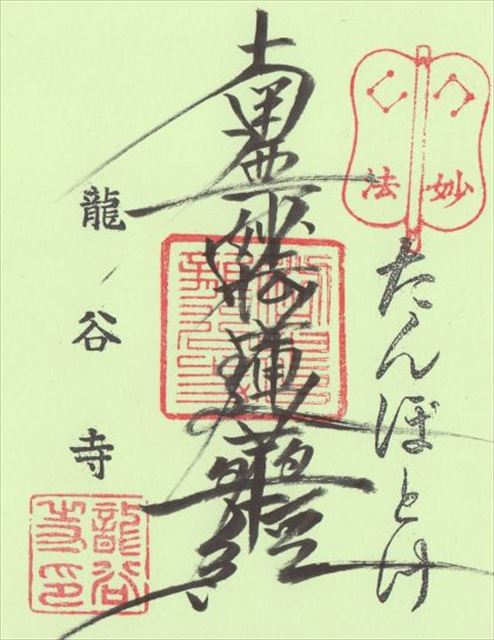 妙法
たんぼとけ
南無妙法蓮華経
龍谷寺
龍谷寺印